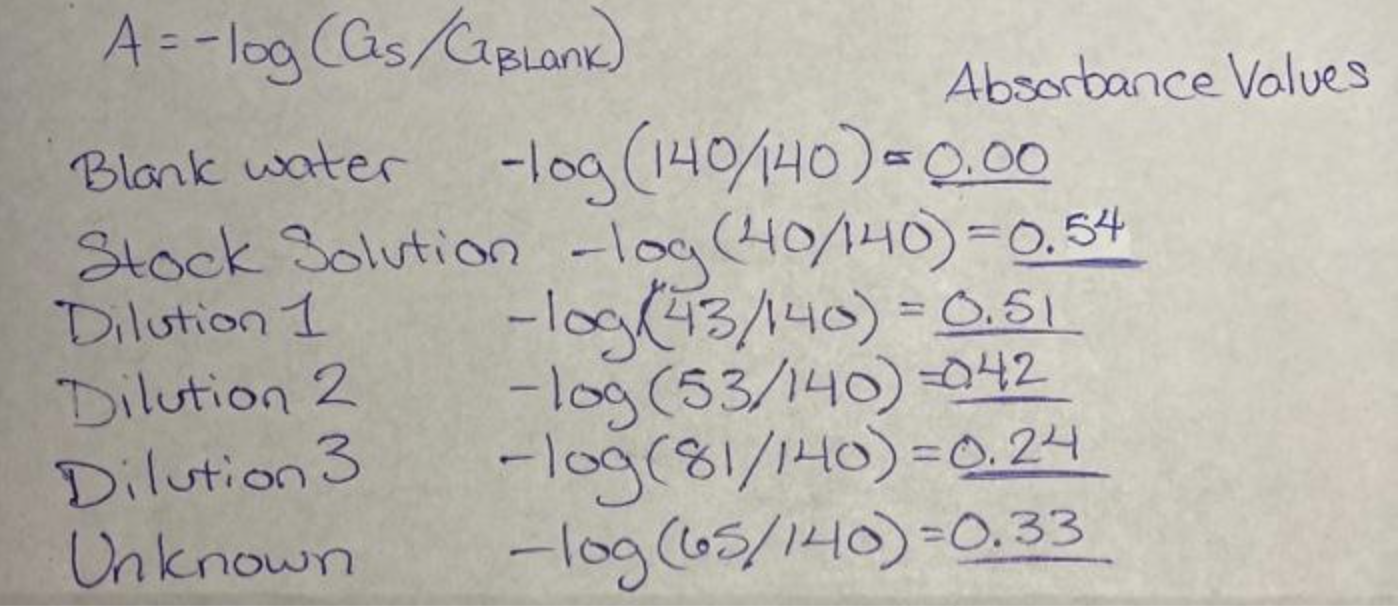 A = -log(Gs/GBLank)
Absorbance Values
Blank water -log(140/140) = 0.00
Stock Solution -log(40/140) = 0.54
Dilution 1 -log(43/140) = 0.51
Dilution 2 -log(53/140) = 042
Dilution 3 -log(81/140) = 0.24
Unknown -log(65/140) = 0.33